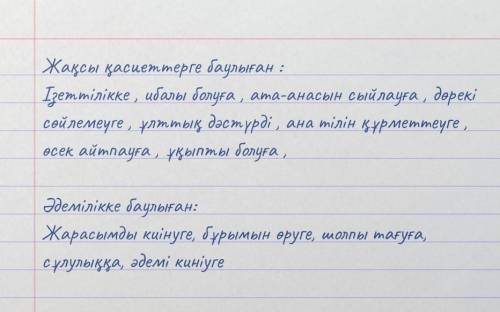 Жақсы қасиеттерге баулыған :
Ізеттілікке , ибалы болуға , ата-анасын сыйлауға , дөрекі
сөйлемеуге , ұлттық дәстүрді , ана тілін құрметтеуге ,
өсек айтпауға , ұқыпты болуға ,
Әдемілікке баулыған:
Жарасымды киінуге, бұрымын өруге, шолпы тағуға,
сұлулыққа, әдемі киніуге